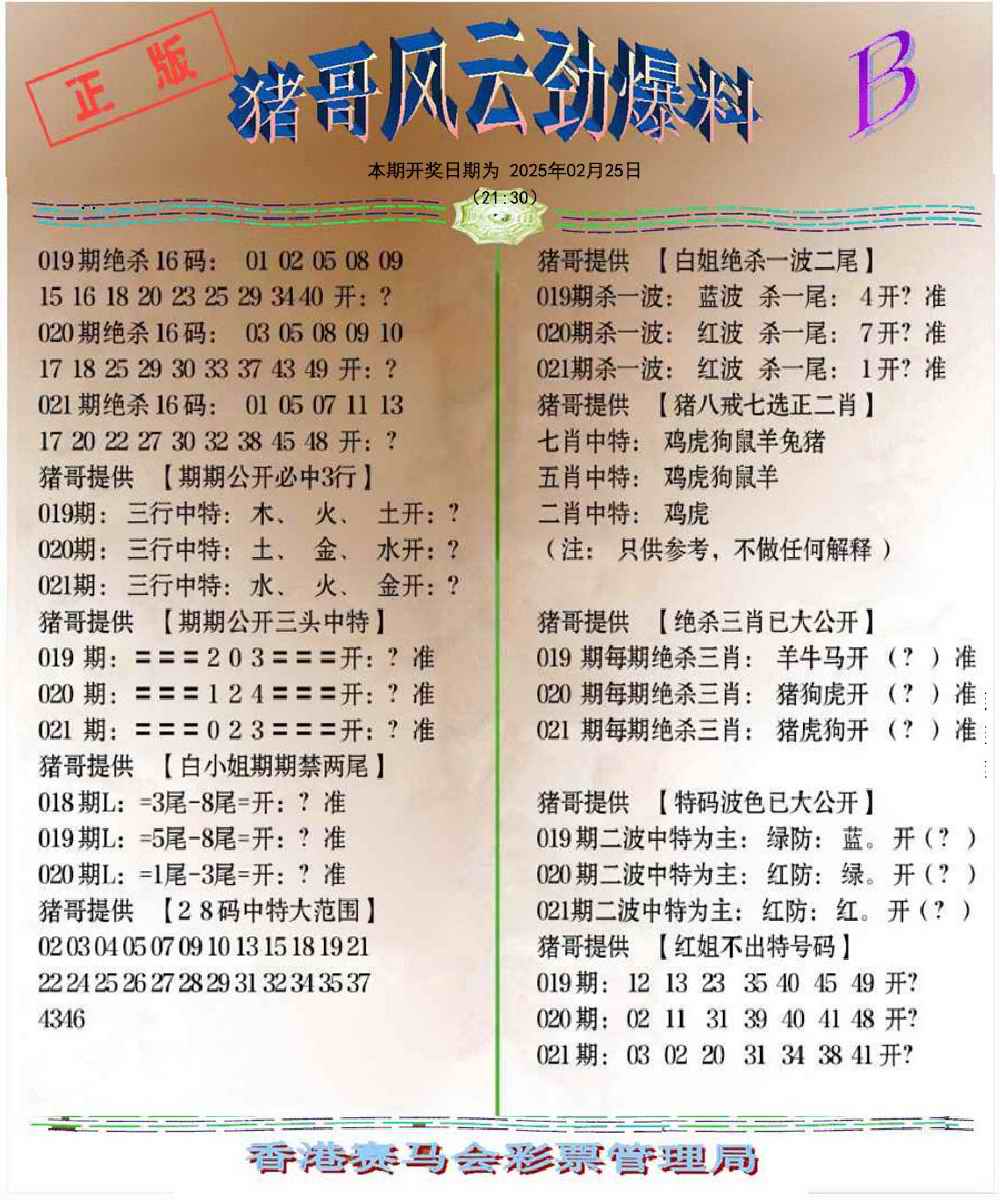 正版
猪哥风云劲爆料
B
本期开奖日期为 2025年02月25日
(21:30)
019期绝杀16码： 01 02 05 08 09
15 16 18 20 23 25 29 34 40 开：?
020期绝杀16码： 03 05 08 09 10
17 18 25 29 30 33 37 43 49 开：?
021期绝杀16码： 01 05 07 11 13
17 20 22 27 30 32 38 45 48 开：?
猪哥提供 【期期公开必中3行】
019期：三行中特：木、 火、 土开：?
020期：三行中特：土、 金、 水开：?
021期：三行中特：水、 火、 金开：?
猪哥提供 【期期公开三头中特】
019 期：===2 0 3===开：? 准
020 期：===1 2 4===开：? 准
021 期：===0 2 3===开：? 准
猪哥提供 【白小姐期期禁两尾】
018期L：=3尾-8尾=开：? 准
019期L：=5尾-8尾=开：? 准
020期L：=1尾-3尾=开：? 准
猪哥提供 【2 8码中特大范围】
02 03 04 05 07 09 10 13 15 18 19 21
22 24 25 26 27 28 29 31 32 34 35 37
43 46
猪哥提供 【白姐绝杀一波二尾】
019期杀一波： 蓝波 杀一尾： 4开? 准
020期杀一波： 红波 杀一尾： 7开? 准
021期杀一波： 红波 杀一尾： 1开? 准
猪哥提供 【猪八戒七选正二肖】
七肖中特： 鸡虎狗鼠羊兔猪
五肖中特： 鸡虎狗鼠羊
二肖中特： 鸡虎
（注： 只供参考，不做任何解释 ）
猪哥提供 【绝杀三肖已大公开】
019 期每期绝杀三肖： 羊牛马开 （? ）准
020 期每期绝杀三肖： 猪狗虎开 （? ）准
021 期每期绝杀三肖： 猪虎狗开 （? ）准
猪哥提供 【特码波色已大公开】
019期二波中特为主： 绿防： 蓝。开（? ）
020期二波中特为主： 红防： 绿。开（? ）
021期二波中特为主： 红防： 红。开（? ）
猪哥提供 【红姐不出特号码】
019期： 12 13 23 35 40 45 49 开?
020期： 02 11 31 39 40 41 48 开?
021期： 03 02 20 31 34 38 41 开?
香港赛马会彩票管理局